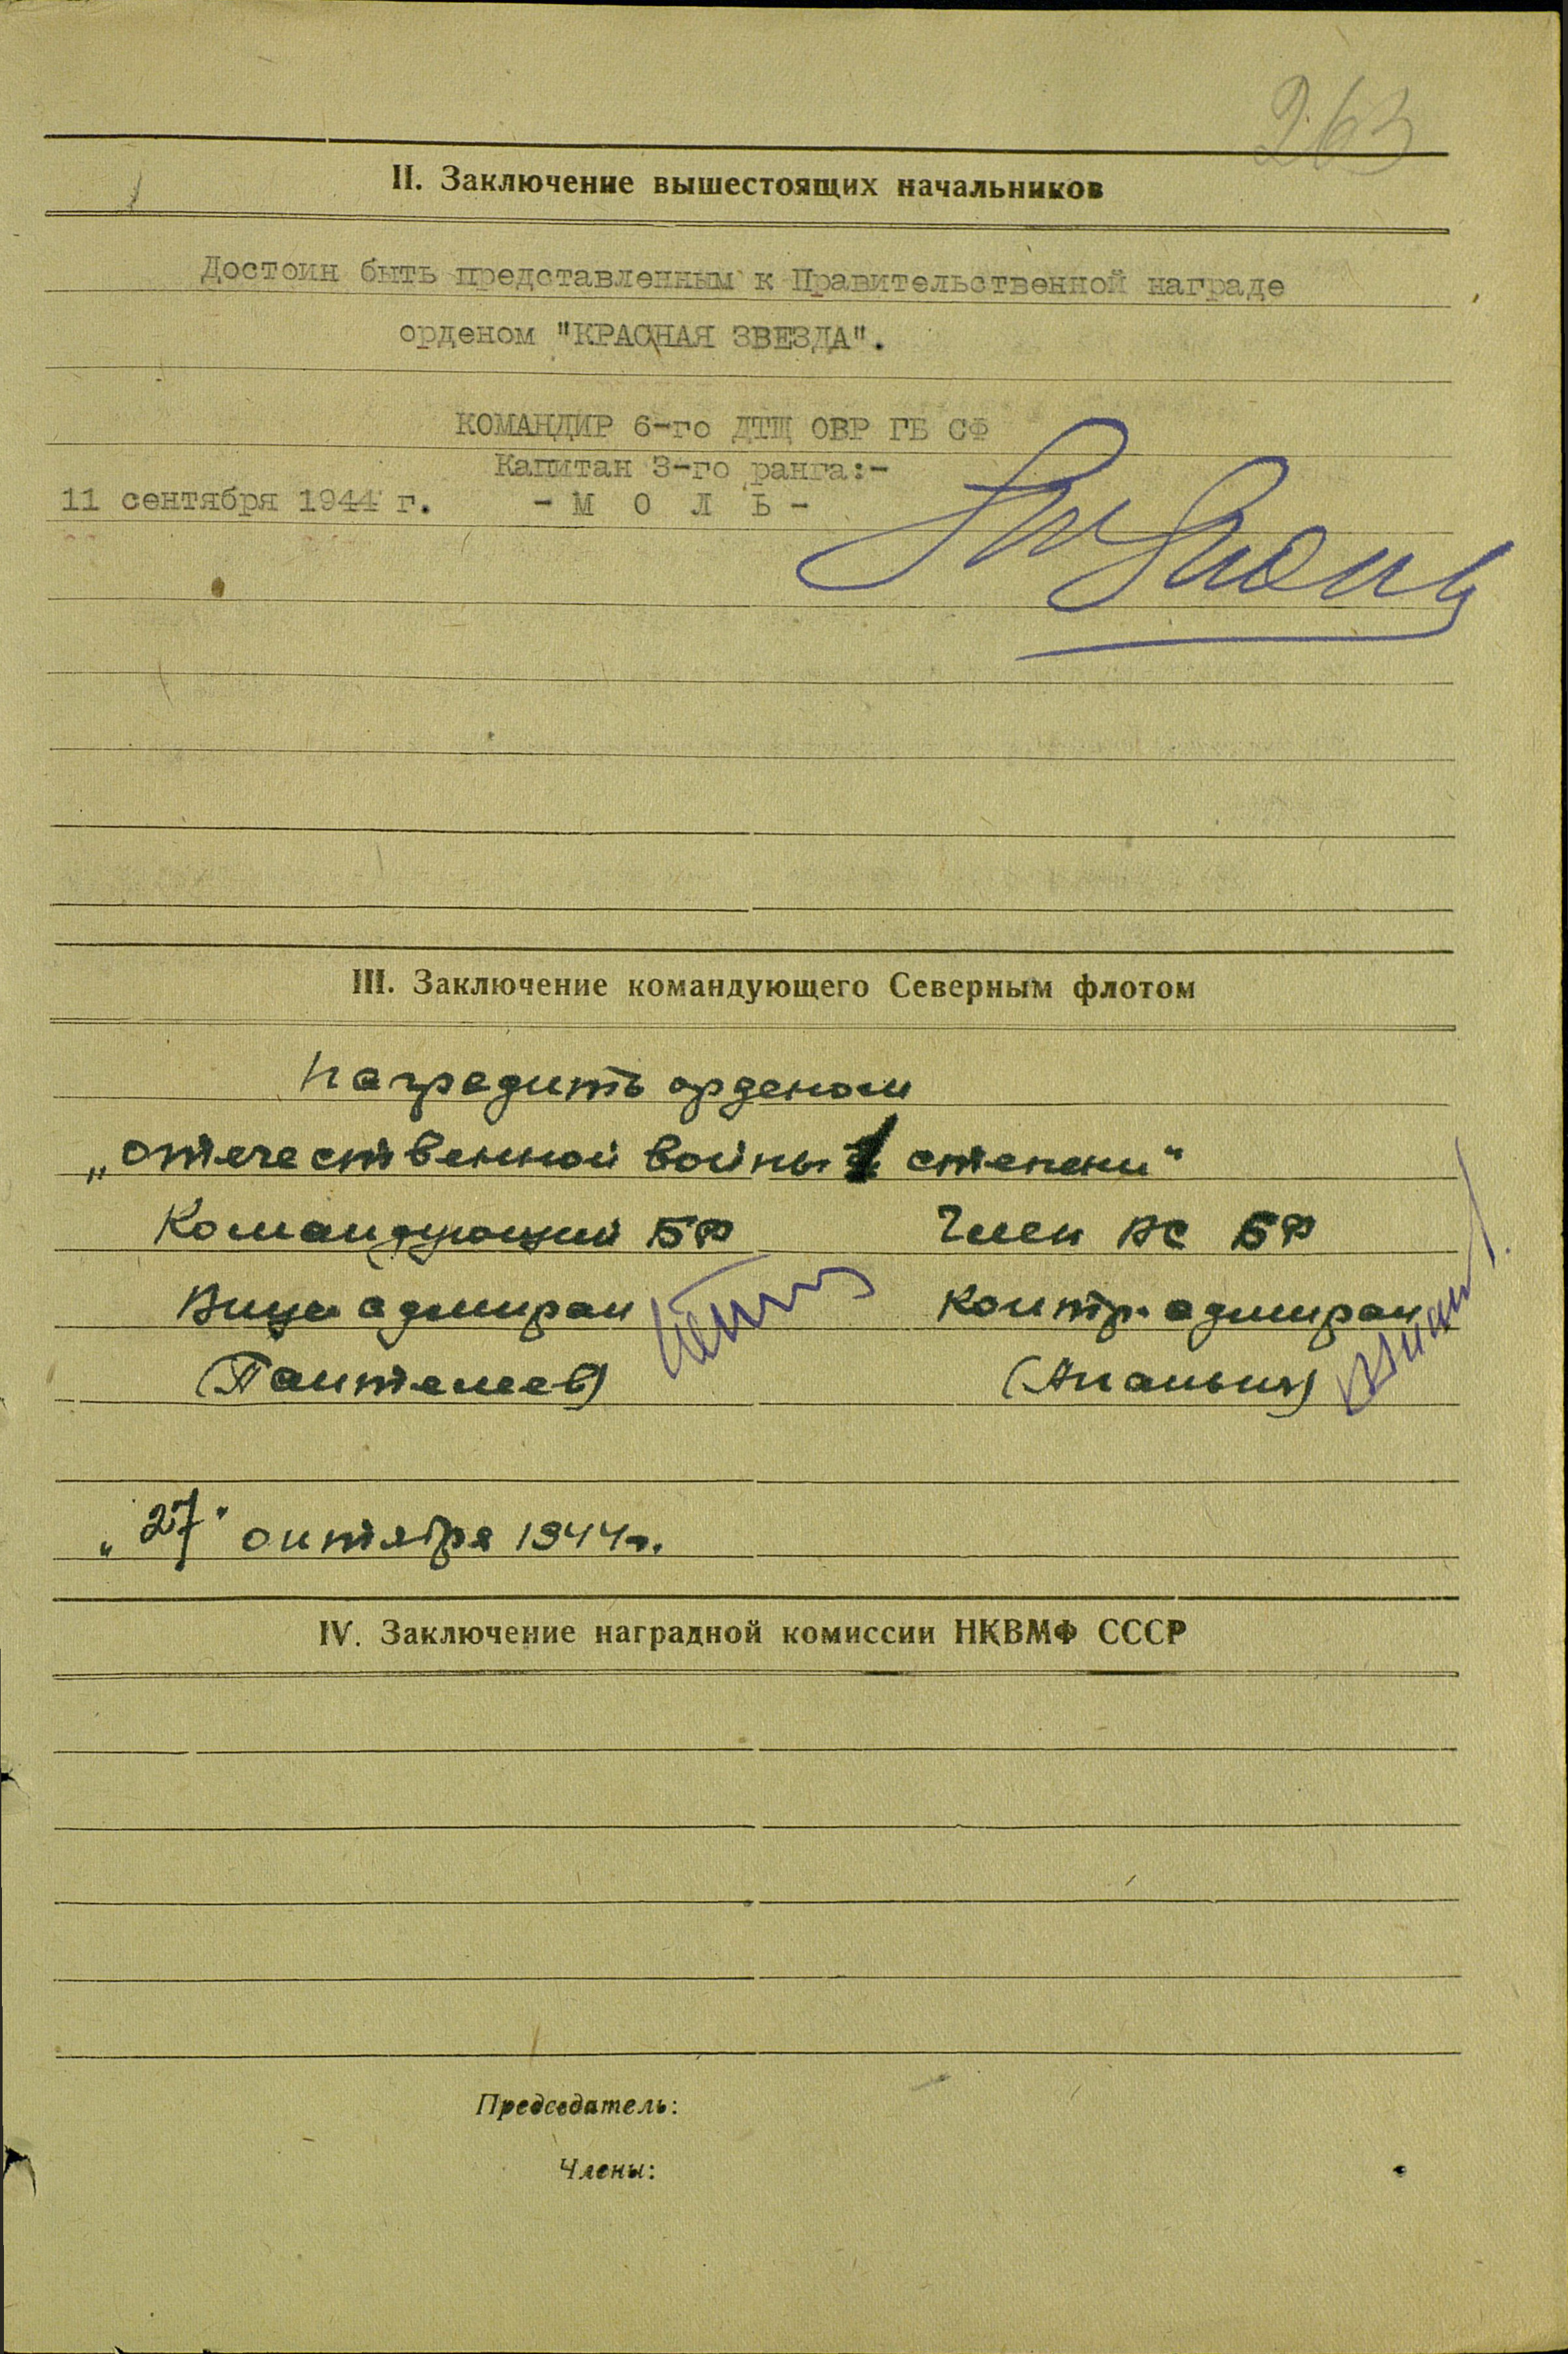 263
II. Заключение вышестоящих начальников
Достоин быть представленным к Правительственной награде
орденом "КРАСНАЯ ЗВЕЗДА".
КОМАНДИР 6-го ДТЩ ОВР ГБ СФ
Капитан 3-го ранга:-
11 сентября 1944 г. - М О Л Ь -
III. Заключение командующего Северным флотом
Наградить орденом
„отечественной войны 1 степени"
Командующий БФ Член ВС БФ
Вице адмирал Контр-адмирал
(Пантелеев) (Ананьич)
„27" октября 1944г.
IV. Заключение наградной комиссии НКВМФ СССР
Председатель:
Члены: